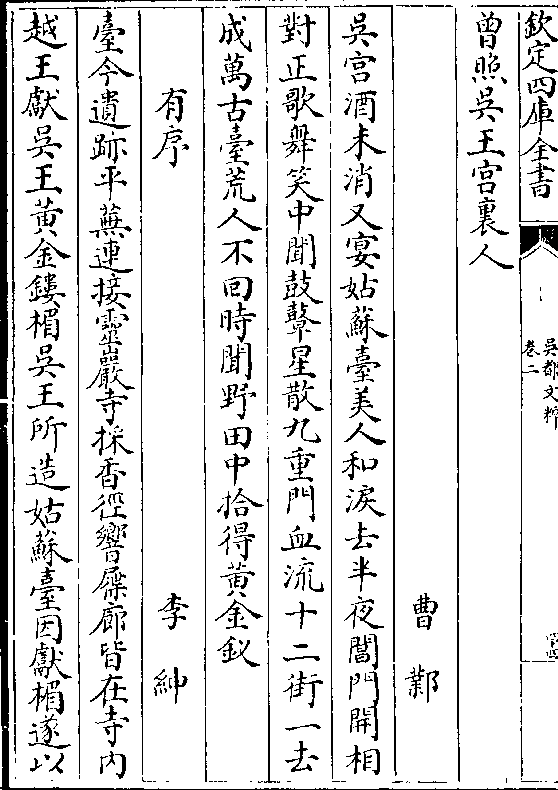 欽定四庫全書
吳都文粹
卷二
曾照吳王宮裏人
曹鄴
吳宮酒未消又宴姑蘇臺美人和淚去半夜閶門開相
對正歌舞笑中聞鼓鼙星散九重門血流十二街一去
成萬古臺荒人不回時聞野田中拾得黃金釵
有序
李紳
臺今遺跡平蕪連接靈巖寺採香徑響屧廊皆在寺內
越王獻吳王黃金鏤楣吳王所造姑蘇臺因獻楣遂以